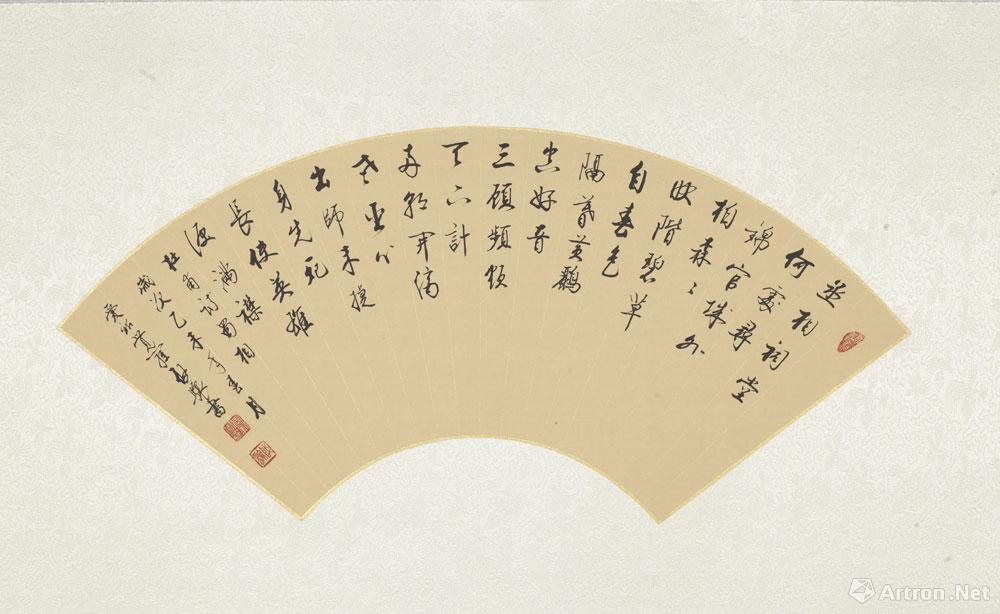 丞相祠堂
何處尋
錦官城外
柏森〻
映階碧草
自春色
隔葉黃鸝
空好音
三顧頻煩
天下計
兩朝開濟
老臣心
出師未捷
身先死
長使英雄
淚滿襟
杜甫詩蜀相
歲次乙未春月
愛新覺羅書
Artron.Net